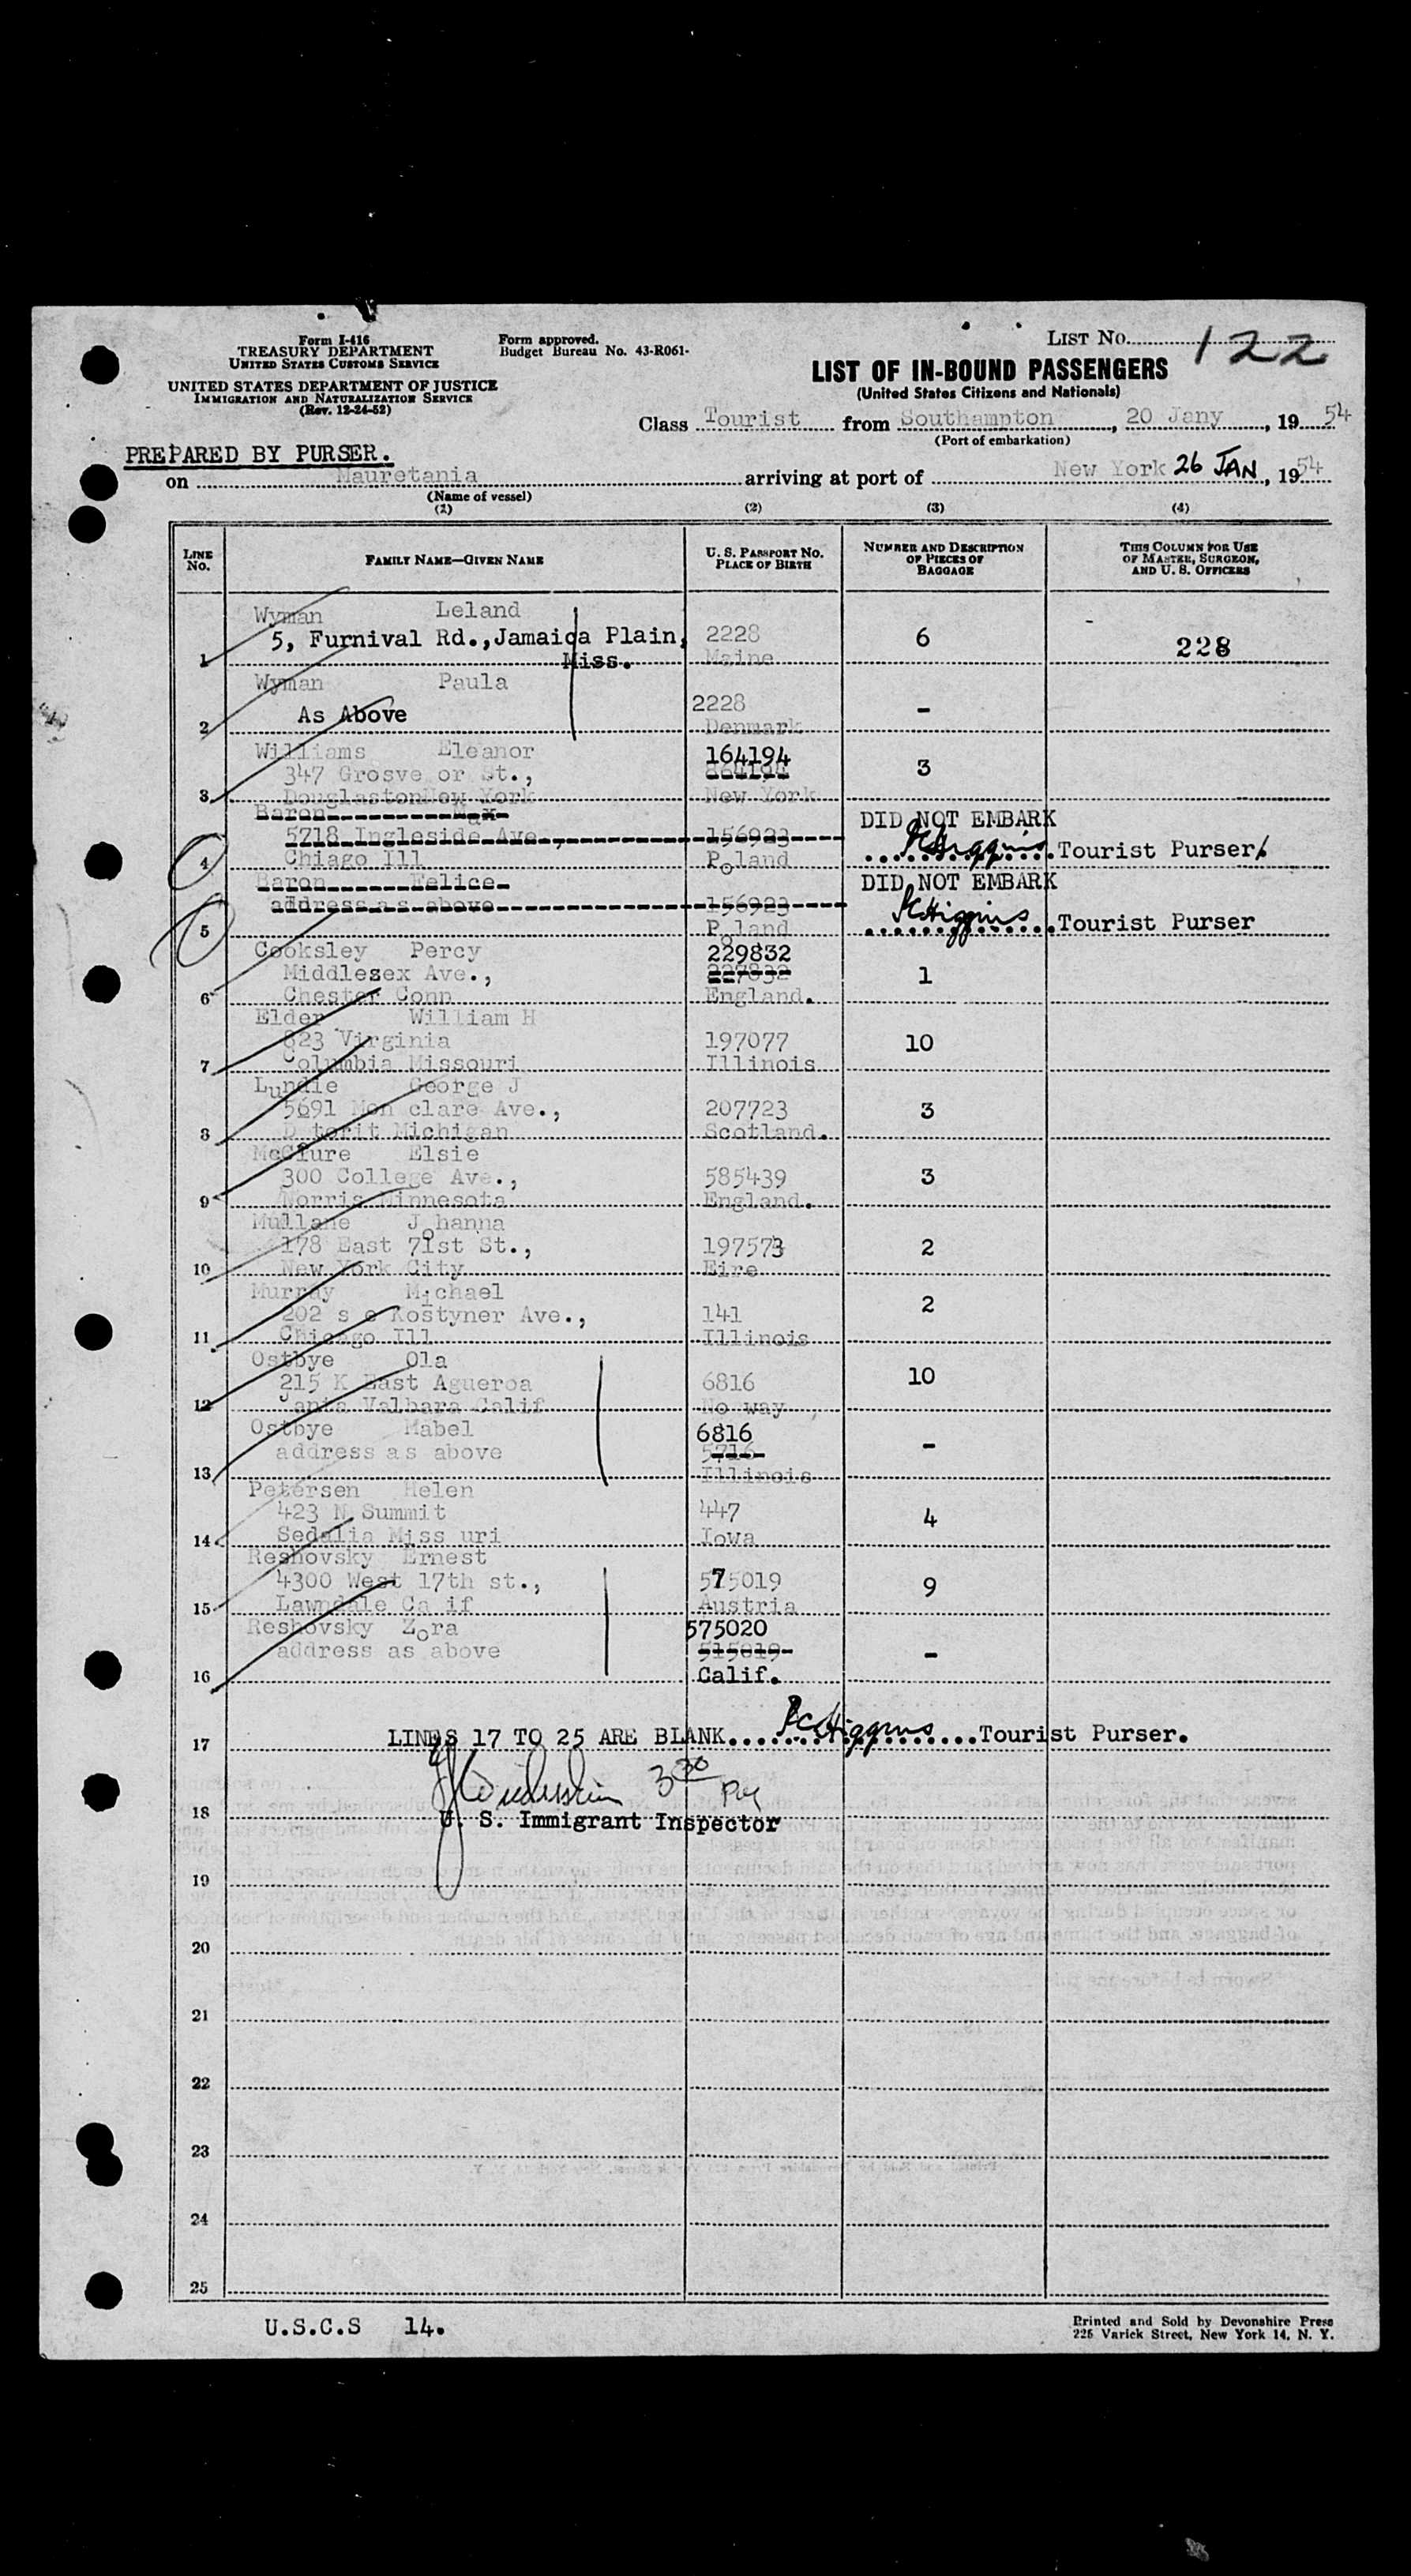 Form I-416
TREASURY DEPARTMENT
UNITED STATES CUSTOMS SERVICE
UNITED STATES DEPARTMENT OF JUSTICE
IMMIGRATION AND NATURALIZATION SERVICE
(Rev. 12-24-52)
Form approved.
Budget Bureau No. 43-R061-
LIST No. 122
LIST OF IN-BOUND PASSENGERS
(United States Citizens and Nationals)
Class Tourist from Southampton, 20 Jany, 1954
(Port of embarkation)
PREPARED BY PURSER.
on Mauretania arriving at port of New York 26 JAN, 1954
(Name of vessel)
(1) (2) (3) (4)
LINE No. FAMILY NAME—GIVEN NAME U. S. PASSPORT NO. PLACE OF BIRTH NUMBER AND DESCRIPTION OF PIECES OF BAGGAGE THIS COLUMN FOR USE OF MASTER, SURGEON, AND U. S. OFFICERS
Wyman Leland
5, Furnival Rd.,Jamaica Plain, 2228 6 228
1 Miss. Maine
Wyman Paula
As Above 2228 -
2 Denmark
Williams Eleanor 164194
347 Grosve or St., 864194 3
3 Douglaston New York New York
Baron Max DID NOT EMBARK
5718 Ingleside Ave., 156923
4 Chiago Ill Poland P C Higgins Tourist Purser.
Baron Felice DID NOT EMBARK
address as above 156923
5 Poland P C Higgins Tourist Purser
Cooksley Percy 229832
Middlesex Ave., 227832 1
6 Chester Conn England.
Elder William H
823 Virginia 197077 10
7 Columbia Missouri Illinois
Lundie George J
5691 Mon clare Ave., 207723 3
8 D torit Michigan Scotland.
McClure Elsie
300 College Ave., 585439 3
9 Morris Minnesota England.
Mullane Johanna
178 East 71st St., 197573 2
10 New York City Eire
Murray Michael
202 s e Kostyner Ave., 141 2
11 Chicago Ill Illinois
Ostbye Ola
215 K East Agueroa 6816 10
12 anta Valbara Calif No way
Ostbye Mabel 6816
address as above 5716 -
13 Illinois
Petersen Helen
423 N Summit 447 4
14 Sedalia Miss uri Iowa
Reshovsky Ernest
4300 West 17th st., 575019 9
15 Lawndale Ca if Austria
Reshovsky Zora 575020
address as above 515019 -
16 Calif.
17 LINES 17 TO 25 ARE BLANK P C Higgins Tourist Purser.
3 30 Pm
18 U. S. Immigrant Inspector
19
20
21
22
23
24
25
U.S.C.S 14.
Printed and Sold by Devonshire Press
225 Varick Street, New York 14, N. Y.